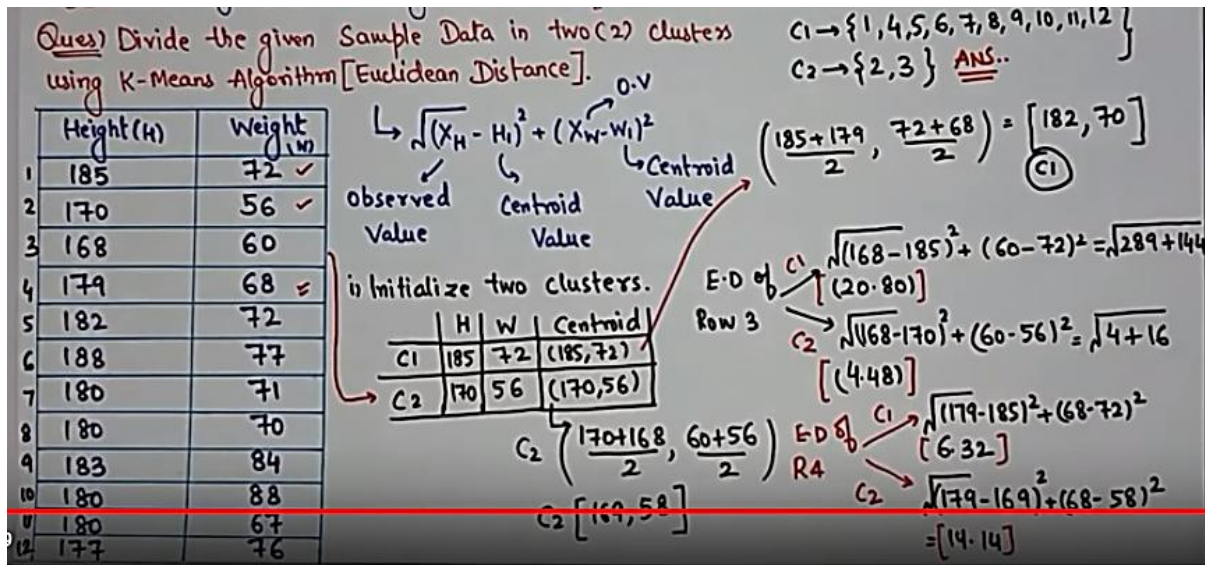 Ques) Divide the given Sample Data in two (2) clusters
using K-Means Algorithm [Euclidean Distance].
C1→{1,4,5,6,7,8,9,10,11,12}
C2→{2,3} ANS..
Height (H) Weight (W)
1 185 72 ✓
2 170 56 ✓
3 168 60
4 179 68
5 182 72
6 188 77
7 180 71
8 180 70
9 183 84
10 180 88
11 180 67
12 177 76
O.V
↳ √(X_H - H₁)² + (X_W - W₁)²
Observed Value
Centroid Value
Centroid Value
i) Initialize two clusters.
H W Centroid
C1 185 72 (185,72)
C2 170 56 (170,56)
C2 (170+168/2, 60+56/2)
C2 [169,58]
(185+179/2, 72+68/2) = [182,70]
C1
E.D of Row 3
C1 √(168-185)² + (60-72)² = √289+144
[(20.80)]
C2 √(168-170)² + (60-56)² = √4+16
[(4.48)]
E.D of R4
C1 √(179-185)² + (68-72)²
[6.32]
C2 √(179-169)² + (68-58)²
=[14.14]